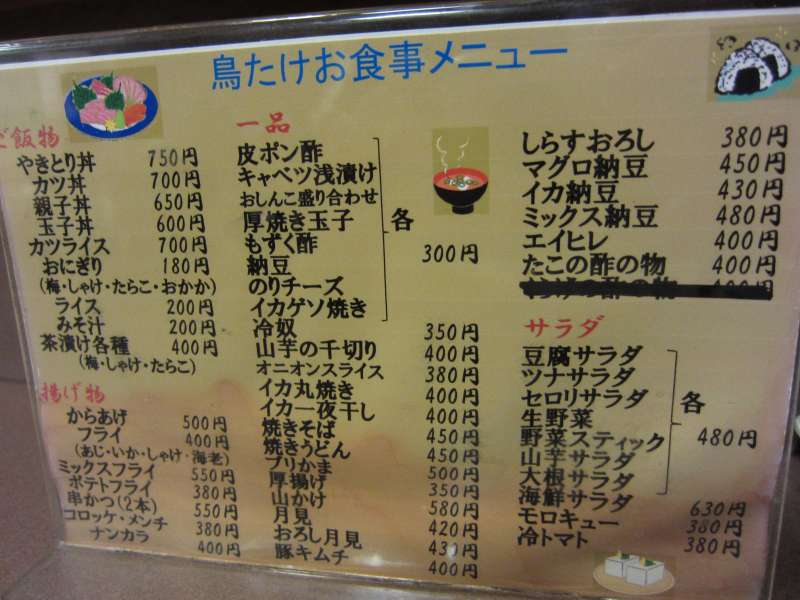 鳥たけお食事メニュー
ご飯物
やきとり丼 750円
カツ丼 700円
親子丼 650円
玉子丼 600円
カツライス 700円
おにぎり 180円
(梅・しゃけ・たらこ・おかか)
ライス 200円
みそ汁 200円
茶漬け各種 400円
(梅・しゃけ・たらこ)
揚げ物
からあげ 500円
フライ 400円
(あじ・いか・しゃけ・海老)
ミックスフライ 550円
ポテトフライ 380円
串かつ(2本) 550円
コロッケ・メンチ 380円
ナンカラ 400円
一品
皮ポン酢
キャベツ浅漬け
おしんこ盛り合わせ
厚焼き玉子
もずく酢
納豆
のりチーズ
イカゲソ焼き
各 300円
冷奴 350円
山芋の千切り 400円
オニオンスライス 380円
イカ丸焼き 400円
イカ一夜干し 400円
焼きそば 450円
焼きうどん 450円
ブリかま 500円
厚揚げ 350円
山かけ 580円
月見 420円
おろし月見 430円
豚キムチ 400円
しらすおろし 380円
マグロ納豆 450円
イカ納豆 430円
ミックス納豆 480円
エイヒレ 400円
たこの酢の物 400円
の酢の物 400円
サラダ
豆腐サラダ
ツナサラダ
セロリサラダ
生野菜
野菜スティック
山芋サラダ
大根サラダ
各 480円
海鮮サラダ 630円
モロキュー 380円
冷トマト 380円